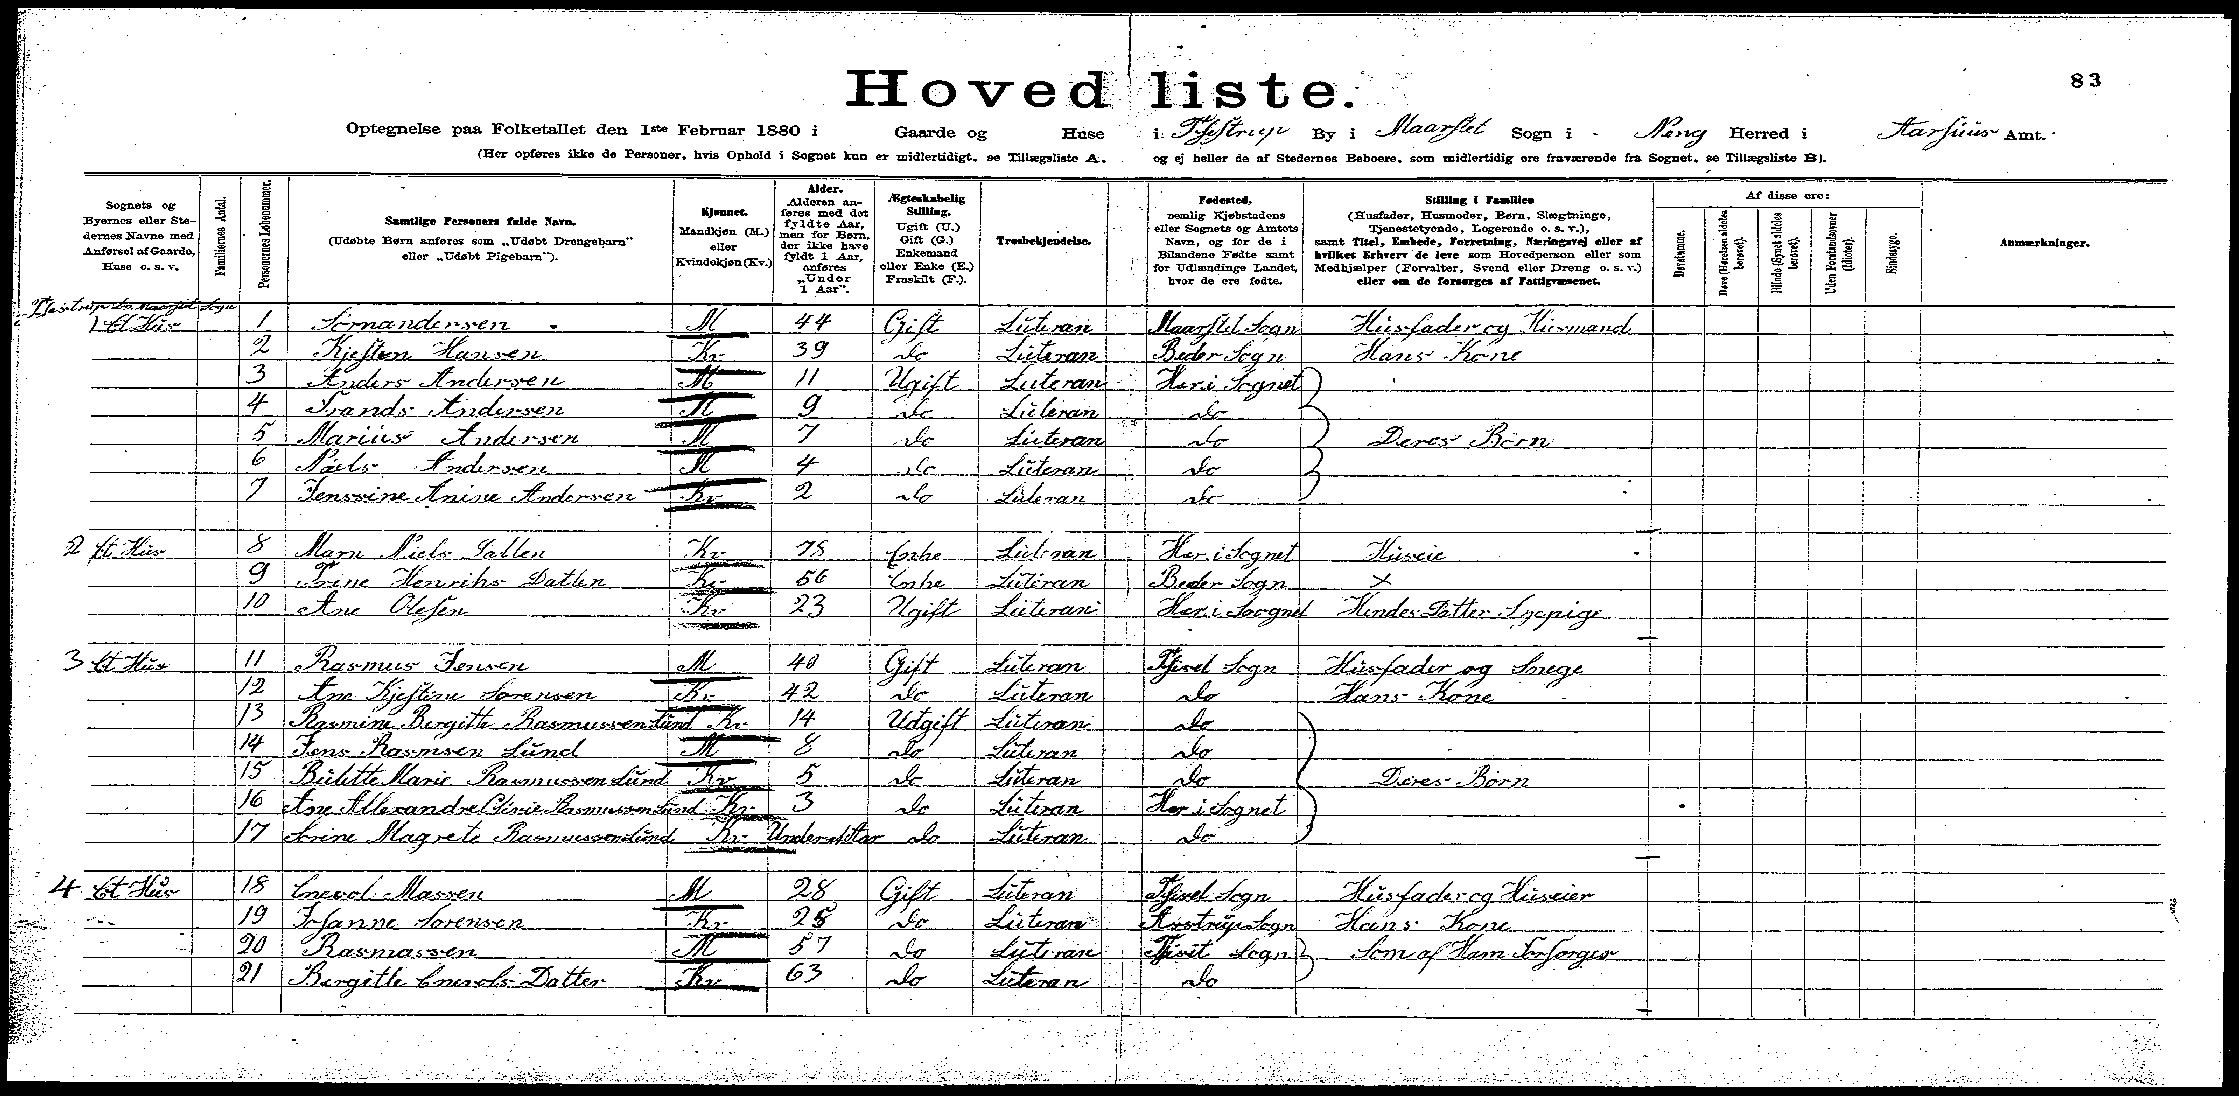 83
Hovedliste.
Optegnelse paa Folketallet den 1ste Februar 1880 i Gaarde og Huse i Thestrup By i Maarslet Sogn i Ning Herred i Aarhuus Amt.
(Her opføres ikke de Personer, hvis Ophold i Sognet kun er midlertidigt, se Tillægsliste A. og ej heller de af Stedernes Beboere, som midlertidig ere fraværende fra Sognet, se Tillægsliste B).
Sognets og Byernes eller Stedernes Navne med Anførsel af Gaarde, Huse o. s. v.
Familiernes Antal.
Personernes Løbenummer.
Samtlige Personers fulde Navn. (Udøbte Børn anføres som „Udøbt Drengebarn“ eller „Udøbt Pigebarn“).
Kjønnet. Mandkjøn (M.) eller Kvindekjøn (Kv.)
Alder. Alderen anføres med det fyldte Aar, men for Børn, der ikke have fyldt 1 Aar, anføres „Under 1 Aar“.
Ægteskabelig Stilling. Ugift (U.) Gift (G.) Enkemand eller Enke (E.) Fraskilt (F.).
Trosbekjendelse.
Fødested, nemlig Kjøbstadens eller Sognets og Amtets Navn, og for de i Bilandene Fødte samt for Udlændinge Landet, hvor de ere fødte.
Stilling i Familien (Husfader, Husmoder, Børn, Slægtninge, Tjenestetyende, Logerende o. s. v.), samt Titel, Embede, Forretning, Næringsvej eller af hvilket Erhverv de leve som Hovedperson eller som Medhjælper (Forvalter, Svend eller Dreng o. s. v.) eller om de forsørges af Fattigvæsenet.
Af disse ere:
Døvstumme.
Døve (Hørelsen aldeles berøvet).
Blinde (Synet aldeles berøvet).
Uden Forstandsevner (Idioter).
Sindssyge.
Anmærkninger.
Sogn
1 Et Hus 1 Sørnandersen M 44 Gift Luteran Maarslet Sogn Husfader og Husmand
2 Kjesten Hansen Kv 39 do Luteran Beder Sogn Hans Kone
3 Anders Andersen M 11 Ugift Luteran Her i Sognet
4 Frands Andersen M 9 do Luteran do
5 Marius Andersen M 7 do Luteran do Deres Børn
6 Niels Andersen M 4 do Luteran do
7 Jenssine Anine Andersen Kv 2 do Luteran do
2 Et Hus 8 Marn Niels Kv Enke Luteran Her i Sognet Huseie
9 Henriks Datten Kv 56 Enke Luteran Beder Sogn x
10 Ane Olesen Kv 23 Ugift Luteran Her i Soognet Hendes Datter Sypige
3 Et Hus 11 Rasmus Jensen M 40 Gift Luteran Sogn Husfader og Smege
12 Ane Kjestine Sørensen Kv 42 do Luteran do Hans Kone
13 Rasmine Bergitte Rasmussen Lund Kv 14 Utgift Luteran do
14 Jens Rasmsen Lund M 8 do Luteran do
15 Marie Rasmussen Lund Kv 5 do Luteran do Deres Børn
16 Ane Rasmussen Lund Kv 3 do Luteran Her i Sognet
17 Sorine Magrete Rasmussen Lund Kv Under et Aar do Luteran do
4 Et Hus 18 Massen M 28 Gift Luteran Sogn Husfader og Huseier
19 Johanne Sørensen Kv do Luteran Astrup Sogn Hans Kone
20 Rasmassen M 57 do Luteran Sogn Som af Ham Forsørges
21 Bergitte Datter Kv 63 do Luteran do